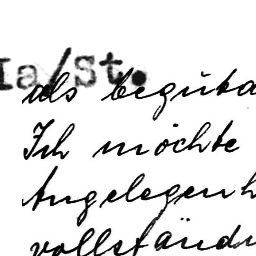 Ia/St.
als beguta
Ich möchte
Angelegenh
vollständi